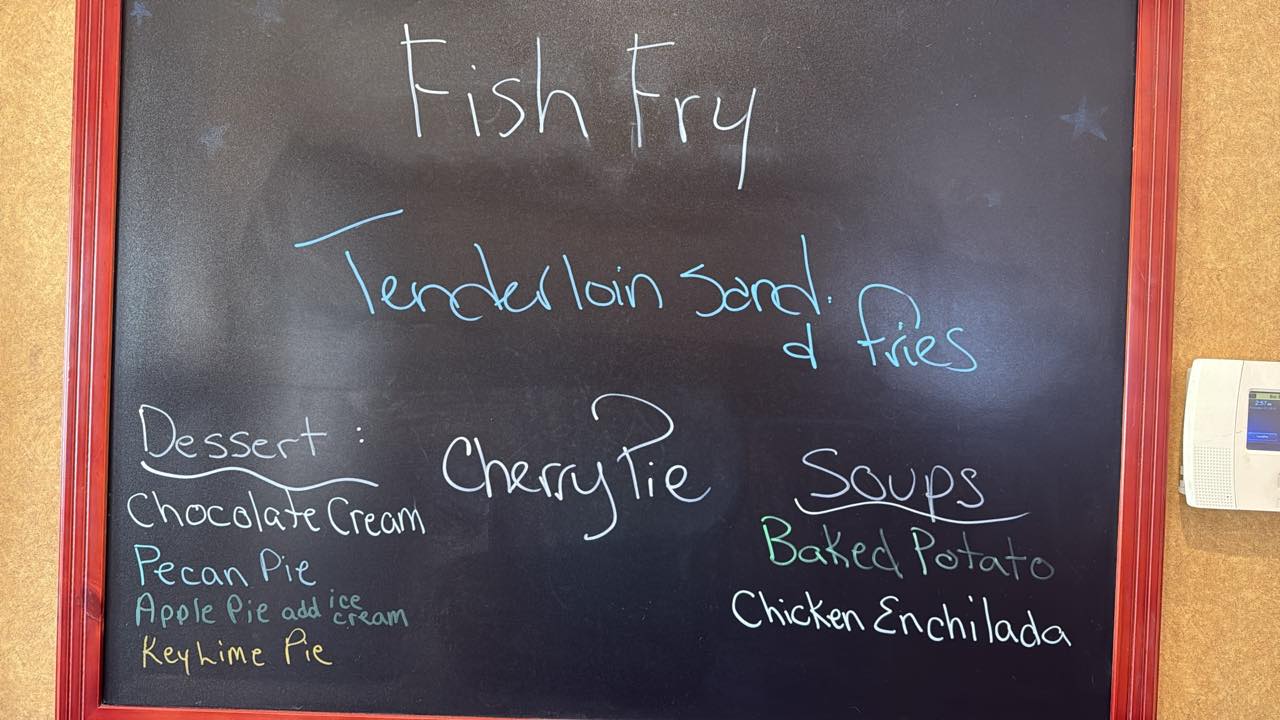 Fish Fry
Tenderloin Sand.
& fries
Dessert :
Chocolate Cream
Pecan Pie
Apple Pie add ice cream
Key Lime Pie
Cherry Pie
Soups
Baked Potato
Chicken Enchilada
2:57